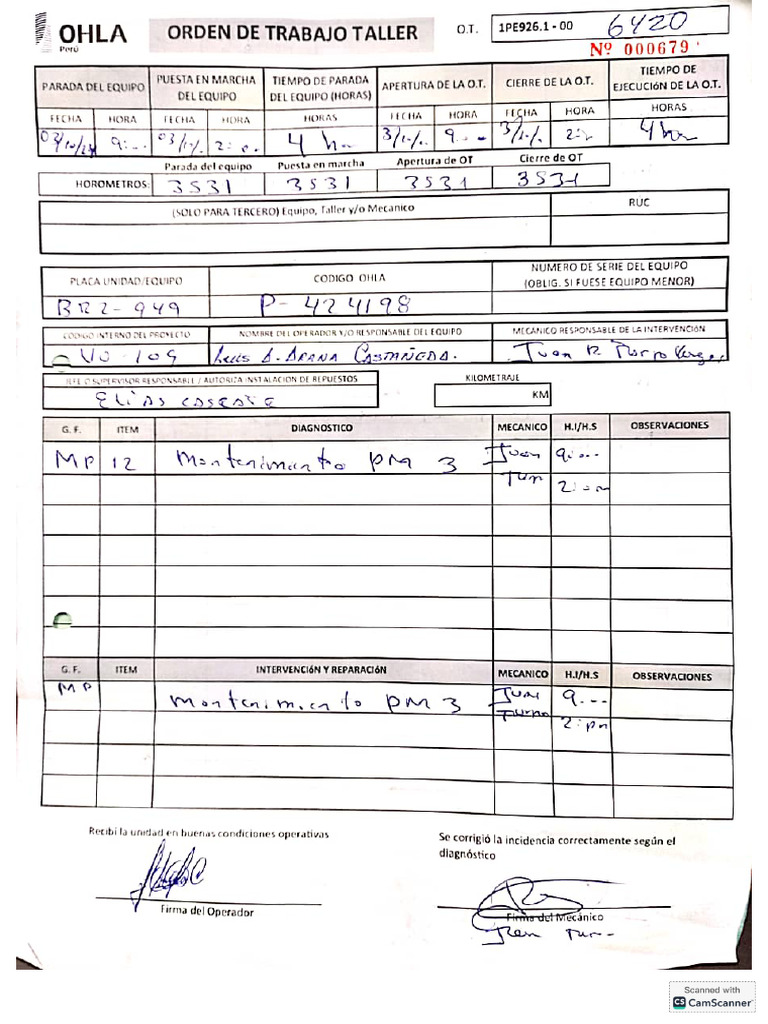 OHLA
Perú
ORDEN DE TRABAJO TALLER
O.T. 1PE926.1 - 00 6420
Nº 000679
PARADA DEL EQUIPO PUESTA EN MARCHA DEL EQUIPO TIEMPO DE PARADA DEL EQUIPO (HORAS) APERTURA DE LA O.T. CIERRE DE LA O.T. TIEMPO DE EJECUCIÓN DE LA O.T.
FECHA HORA FECHA HORA HORAS FECHA HORA FECHA HORA HORAS
9:-- 2: 4 3/10/ 9 3/10/ 2: 4
Parada del equipo Puesta en marcha Apertura de OT Cierre de OT
HOROMETROS: 3531 3531 3531 3531
(SOLO PARA TERCERO) Equipo, Taller y/o Mecanico RUC
PLACA UNIDAD/EQUIPO CODIGO OHLA NUMERO DE SERIE DEL EQUIPO
(OBLIG. SI FUESE EQUIPO MENOR)
P-424198
CODIGO INTERNO DEL PROYECTO NOMBRE DEL OPERADOR Y/O RESPONSABLE DEL EQUIPO MECANICO RESPONSABLE DE LA INTERVENCIÓN
109 Luis A. Arana Castañeda. Juan
JEFE O SUPERVISOR RESPONSABLE / AUTORIZA INSTALACION DE REPUESTOS KILOMETRAJE
Elias KM
G. F. ITEM DIAGNOSTICO MECANICO H.I/H.S OBSERVACIONES
MP 12 Mantenimiento PM 3 Juan 9:--
2:
G. F. ITEM INTERVENCIÓN Y REPARACIÓN MECANICO H.I/H.S OBSERVACIONES
MP Mantenimiento PM 3 Juan 9:--
2: pm
Recibi la unidad en buenas condiciones operativas
Se corrigió la incidencia correctamente según el
diagnóstico
Firma del Operador
Firma del Mecánico
Scanned with
CS CamScanner